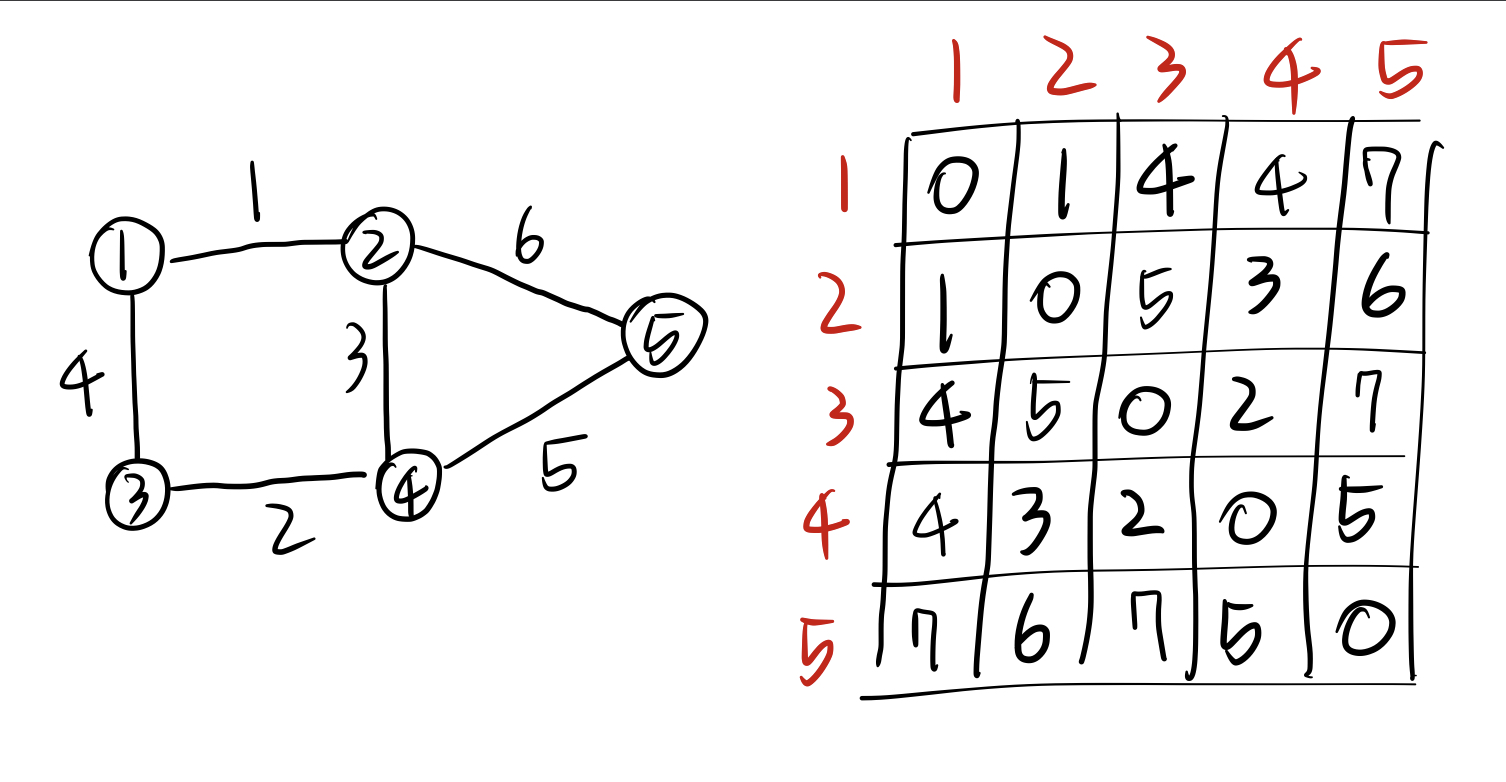 1
1
2
6
5
4
3
3
4
2
5
1 2 3 4 5
1 0 1 4 4 7
2 1 0 5 3 6
3 4 5 0 2 7
4 4 3 2 0 5
5 7 6 7 5 0